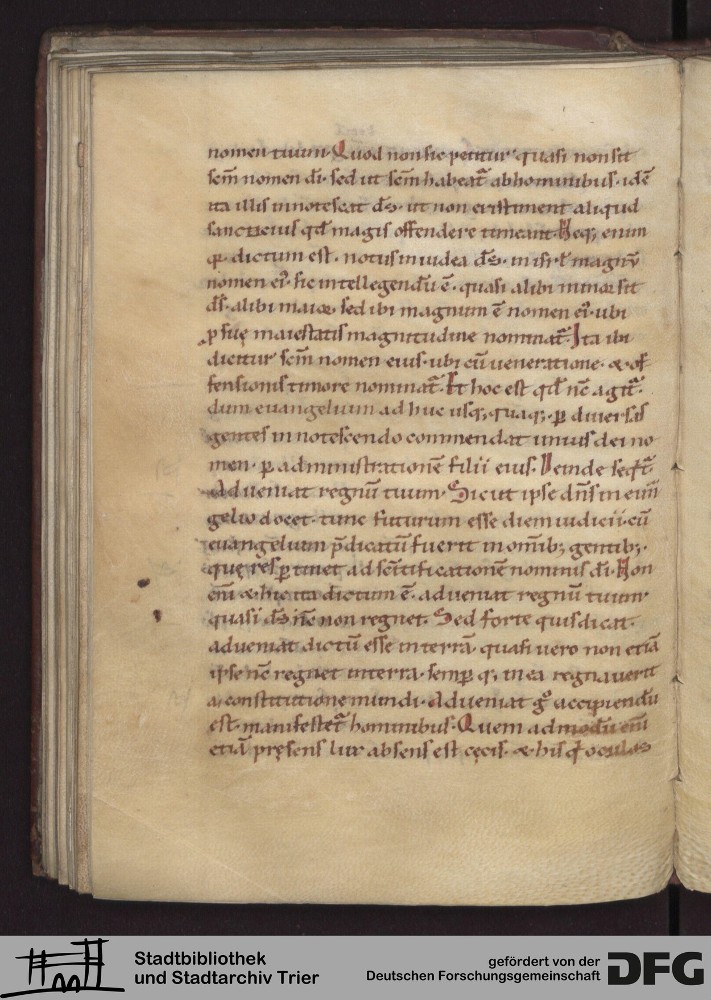 nomen tuum. Quod non sic petitur quasi non sit
scm̄ nomen dī. sed ut scm̄ habeat᷑ ab hominibus. idē
ita illis innotescat d̄s. ut non existiment aliquid
sanctius qd̄ magis offendere timeant. Neq; enim
dictum est. notus in iudea d̄s. in isrl̄ magnū
nomen ei᷒. sic intellegendū ē. quasi alibi minor sit
d̄s. alibi maior. sed ibi magnum ē nomen ei᷒. ubi
ꝓ suę maiestatis magnitudine nominat᷑. Ita ibi
dicitur scm̄ nomen eius. ubi cū ueneratione. & of
fensionis timore nominat᷑. Et hoc est qd̄ nc̄ agit᷑.
dum euangelium ad huc usq; quaq; ꝑ diuersas
gentes innotescendo commendat unius dei no
men. ꝑ administrationē filii eius. Deinde seqt᷑.
Adueniat regnū tuum. Sicut ipse dn̄s in euan
gelio docet. tunc futurum esse diem iudicii. cū
euangelium p̄dicatū fuerit in omīb; gentib;.
quę res ꝑtinet ad scīficationē nominis dī. Non
enī & hic ita dictum ē. adueniat regnū tuum
quasi d̄s nc̄ non regnet. Sed forte quis dicat.
adueniat dictū esse in terrā. quasi uero non etiā
ipse nc̄ regnet in terra. semꝑ q; in ea regnauerit
a constitutione mundi. Adueniat g° accipiendū
est. manifestet᷑ hominibus. Quem admodū enī
etiā pręsens lux absens est cęcis. & his q̄ oculos
Stadtbibliothek
und Stadtarchiv Trier
gefördert von der
Deutschen Forschungsgemeinschaft
DFG